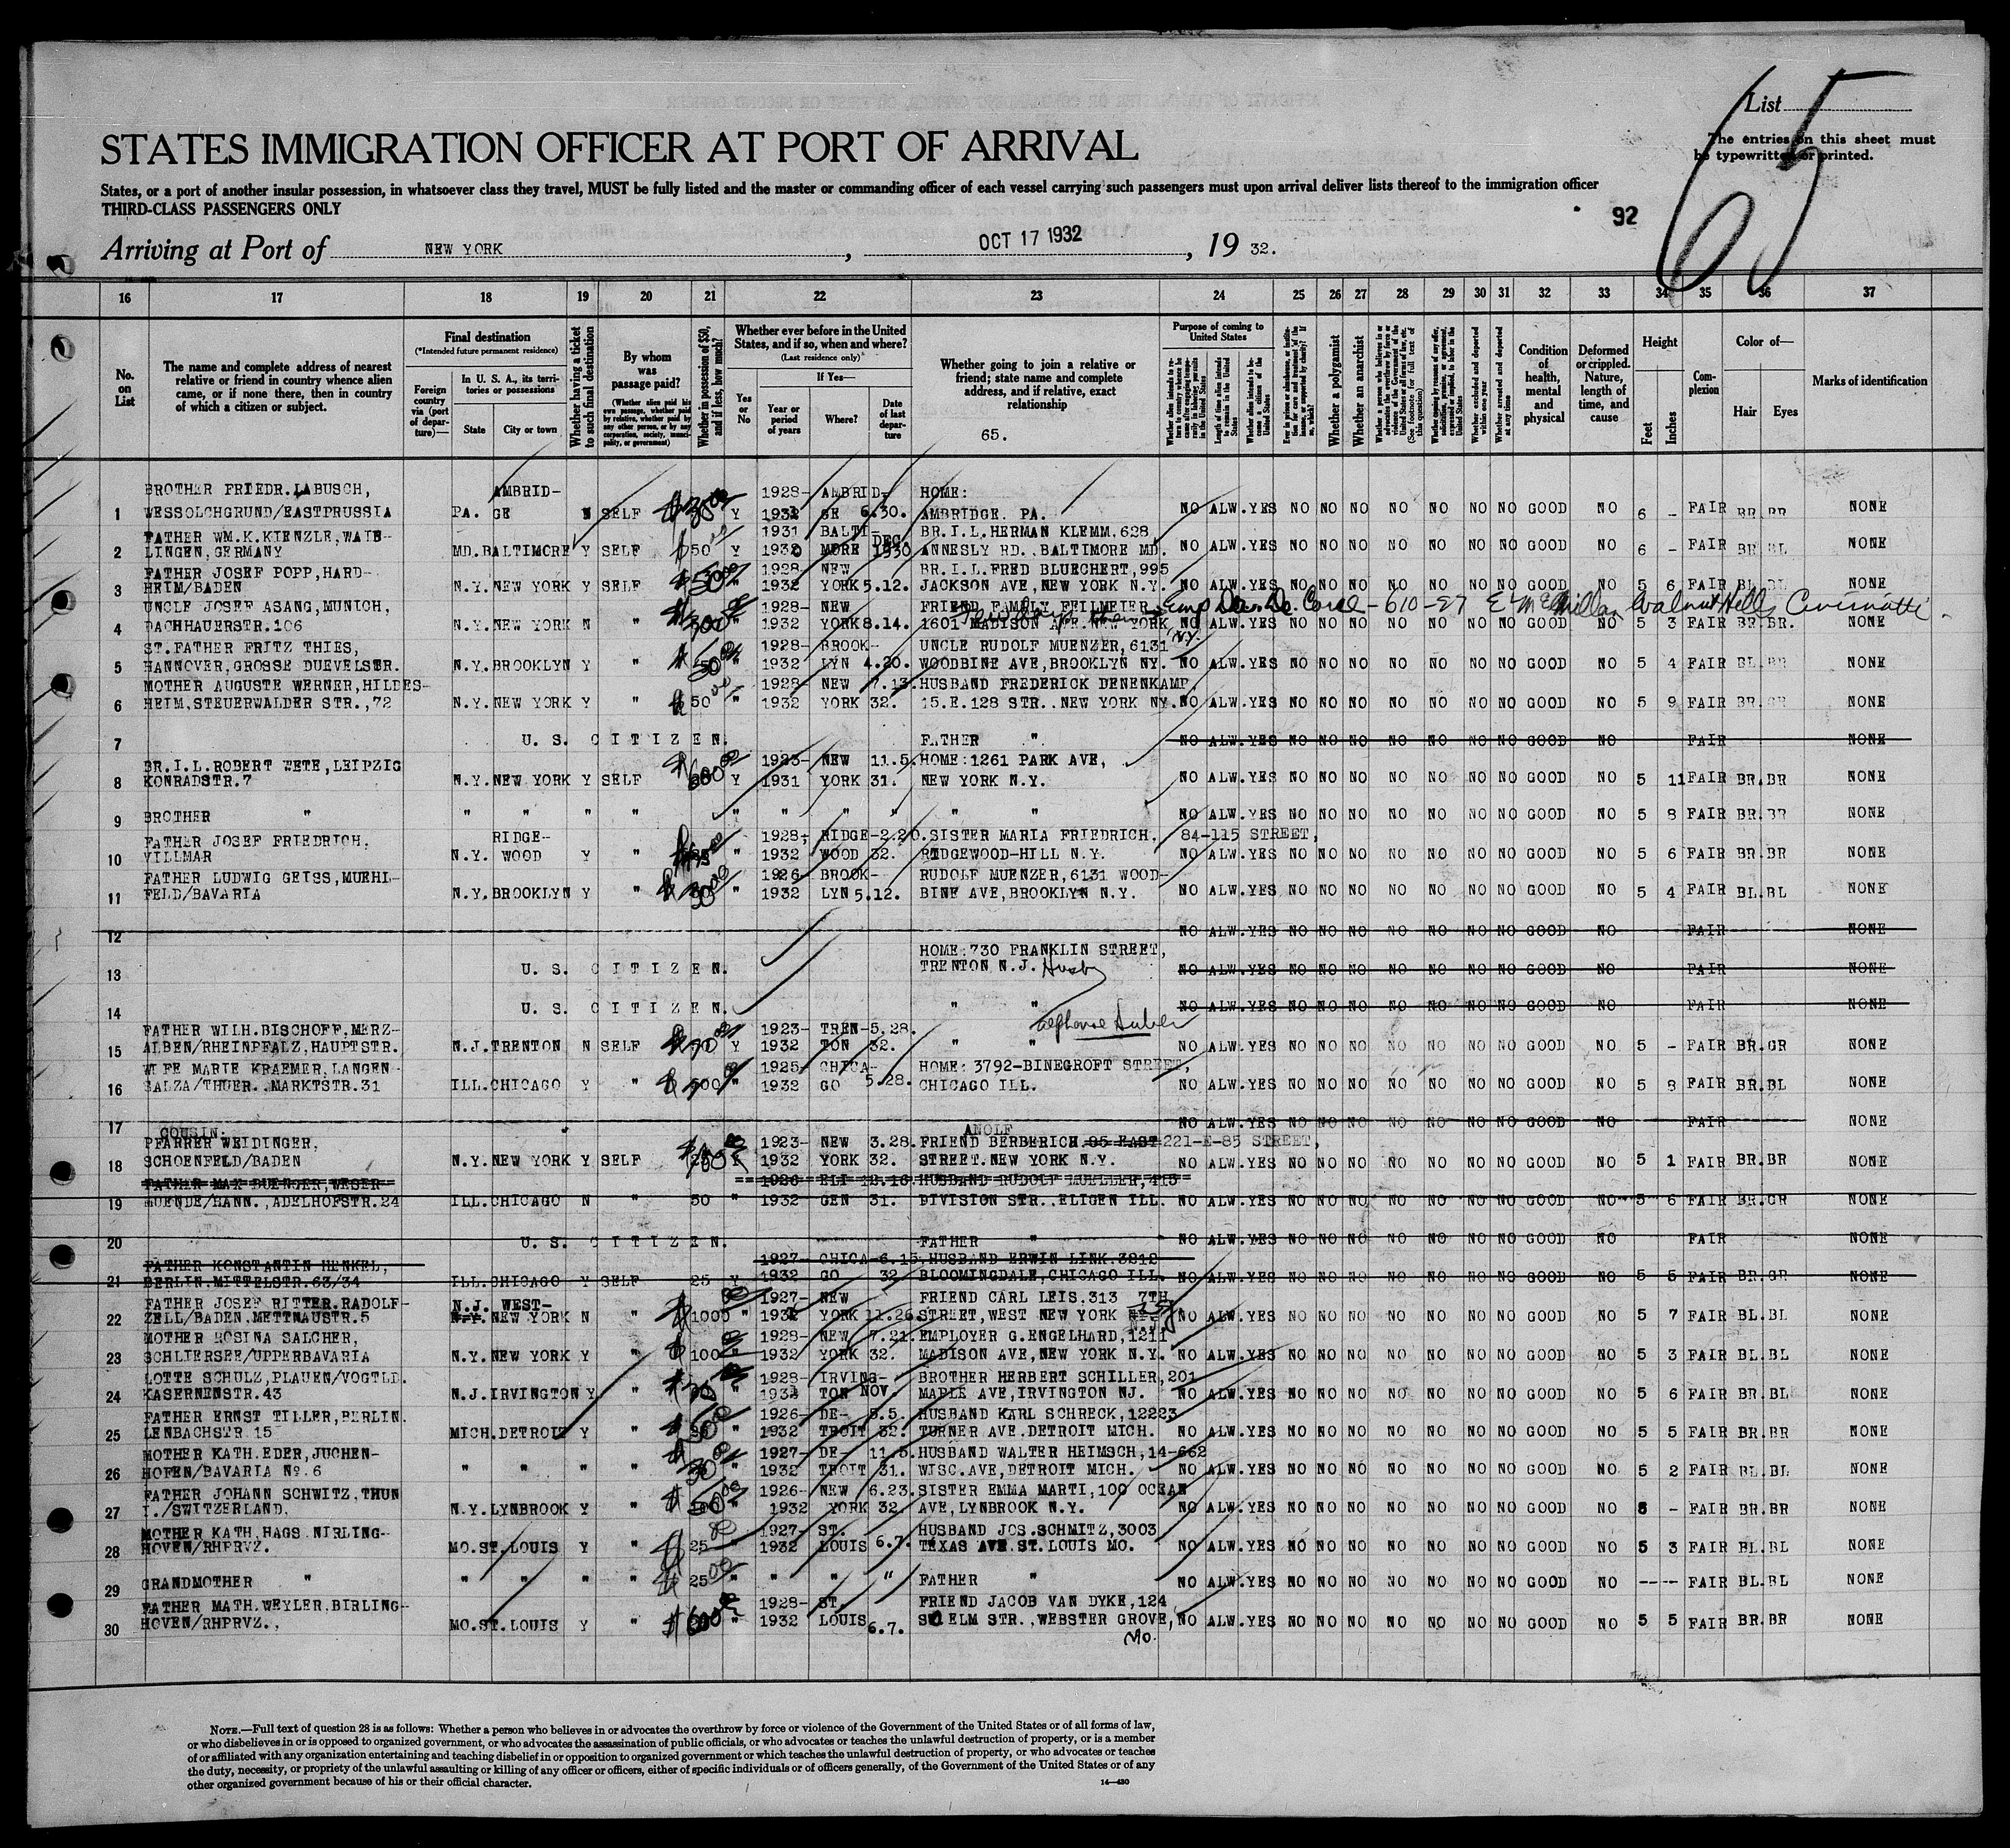 List
65
The entries on this sheet must
be typewritten or printed.
STATES IMMIGRATION OFFICER AT PORT OF ARRIVAL
States, or a port of another insular possession, in whatsoever class they travel, MUST be fully listed and the master or commanding officer of each vessel carrying such passengers must upon arrival deliver lists thereof to the immigration officer
THIRD-CLASS PASSENGERS ONLY
92
Arriving at Port of NEW YORK, OCT 17 1932, 19 32.
16 17 18 19 20 21 22 23 24 25 26 27 28 29 30 31 32 33 34 35 36 37
No. on List
The name and complete address of nearest relative or friend in country whence alien came, or if none there, then in country of which a citizen or subject.
Final destination
(*Intended future permanent residence)
Foreign country via (port of departure)—
In U. S. A., its territories or possessions
State
City or town
Whether having a ticket to such final destination
By whom was passage paid?
(Whether alien paid his own passage, whether paid by relative, whether paid by any other person, or by any corporation, society, municipality, or government)
Whether in possession of $50, and if less, how much?
Whether ever before in the United States, and if so, when and where?
(Last residence only)
Yes or No
If Yes—
Year or period of years
Where?
Date of last departure
Whether going to join a relative or friend; state name and complete address, and if relative, exact relationship
65.
Purpose of coming to United States
Length of time alien intends to remain in the United States
Whether alien intends to become a citizen of the United States
Whether a polygamist
Whether an anarchist
Condition of health, mental and physical
Deformed or crippled. Nature, length of time, and cause
Height
Feet
Inches
Complexion
Color of—
Hair
Eyes
Marks of identification
BROTHER FRIEDR.LABUSCH, AMBRID- 1928- AMBRID- HOME:
1 WESSOLCHGRUND/EASTPRUSSIA PA. GE N SELF Y 1932 GE 6.30. AMBRIDGE. PA. NO ALW. YES NO NO NO NO NO NO NO GOOD NO 6 - FAIR BR.BR NONE
FATHER WM.K.KIENZLE,WAIB- 1931 BALTI- DEC BR.I.L.HERMAN KLEMM,628
2 LINGEN,GERMANY MD.BALTIMORE Y SELF $50 Y 1932 MORE 1930 ANNESLY RD.,BALTIMORE MD. NO ALW. YES NO NO NO NO NO NO NO GOOD NO 6 - FAIR BR.BL NONE
FATHER JOSEF POPP,HARD- 1928- NEW BR.I.L.FRED BLUECHERT,995
3 HEIM/BADEN N.Y.NEW YORK Y SELF $50 " 1932 YORK 5.12. JACKSON AVE,NEW YORK N.Y. NO ALW. YES NO NO NO NO NO NO NO GOOD NO 5 6 FAIR BL.BL NONE
UNCLE JOSEF ASANG,MUNICH, 1928- NEW FRIEND FAMILY FEILMEIER 610-27 E McMillan Walnut Hills Cincinnatti
4 DACHHAUERSTR.106 N.Y.NEW YORK N " $300 " 1932 YORK 8.14. 1601 MADISON AVE.NEW YORK N.Y. NO ALW. YES NO NO NO NO NO NO NO GOOD NO 5 3 FAIR BR.BR. NONE
ST.FATHER FRITZ THIES, 1928- BROOK- UNCLE RUDOLF MUENZER,6131
5 HANNOVER,GROSSE DUEVELSTR. N.Y.BROOKLYN Y " $50 " 1932 LYN 4.20. WOODBINE AVE,BROOKLYN NY. NO ALW. YES NO NO NO NO NO NO NO GOOD NO 5 4 FAIR BL.BR NONE
MOTHER AUGUSTE WERNER,HILDES- 1928- NEW 7.13. HUSBAND FREDERICK DENENKAMP,
6 HEIM,STEUERWALDER STR.,72 N.Y.NEW YORK Y " $50 " 1932 YORK 32. 15.E.128 STR..NEW YORK NY. NO ALW. YES NO NO NO NO NO NO NO GOOD NO 5 9 FAIR BR.GR NONE
7 U. S. C I T I Z E N. FATHER " NO ALW. YES NO NO NO NO NO NO NO GOOD NO FAIR NONE
BR.I.L.ROBERT WETE,LEIPZIG 1923- NEW 11.5. HOME:1261 PARK AVE,
8 KONRADSTR.7 N.Y.NEW YORK Y SELF Y 1931 YORK 31. NEW YORK N.Y. NO ALW. YES NO NO NO NO NO NO NO GOOD NO 5 11 FAIR BR.BR NONE
9 BROTHER " " " " " " " " " " " NO ALW. YES NO NO NO NO NO NO NO GOOD NO 5 8 FAIR BR.BR NONE
FATHER JOSEF FRIEDRICH, RIDGE- 1928- RIDGE- 2.20. SISTER MARIA FRIEDRICH. 84-115 STREET,
10 VILLMAR N.Y. WOOD Y " " 1932 WOOD 32. RIDGEWOOD-HILL N.Y. NO ALW. YES NO NO NO NO NO NO NO GOOD NO 5 6 FAIR BR.BR NONE
FATHER LUDWIG GEISS,MUEHL- 1926- BROOK- RUDOLF MUENZER,6131 WOOD-
11 FELD/BAVARIA N.Y.BROOKLYN Y " " 1932 LYN 5.12. BINE AVE,BROOKLYN N.Y. NO ALW. YES NO NO NO NO NO NO NO GOOD NO 5 4 FAIR BL.BL NONE
12 NO ALW. YES NO NO NO NO NO NO NO GOOD NO FAIR NONE
HOME:730 FRANKLIN STREET,
13 U. S. C I T I Z E N. TRENTON N.J. NO ALW. YES NO NO NO NO NO NO NO GOOD NO FAIR NONE
14 U. S. C I T I Z E N. " " NO ALW. YES NO NO NO NO NO NO NO GOOD NO FAIR NONE
FATHER WILH.BISCHOFF,MERZ- 1923- TREN- 5.28.
15 ALBEN/RHEINPFALZ,HAUPTSTR. N.J.TRENTON N SELF Y 1932 TON 32. " " NO ALW. YES NO NO NO NO NO NO NO GOOD NO 5 - FAIR BR.GR NONE
WIFE MARIE KRAEMER,LANGEN- 1925- CHICA- HOME: 3792-BINEGROFT STREET,
16 SALZA/THUER..MARKTSTR.31 ILL.CHICAGO Y " " 1932 GO 5.28. CHICAGO ILL. NO ALW. YES NO NO NO NO NO NO NO GOOD NO 5 8 FAIR BR.BL NONE
17 NO ALW. YES NO NO NO NO NO NO NO GOOD NO FAIR NONE
COUSIN: ANOLF
PFARRER WEIDINGER, 1923- NEW 3.28. FRIEND BERBERICH 85 EAST 221-E-85 STREET,
18 SCHOENFELD/BADEN N.Y.NEW YORK Y SELF 1932 YORK 32. STREET.NEW YORK N.Y. NO ALW. YES NO NO NO NO NO NO NO GOOD NO 5 1 FAIR BR.BR NONE
FATHER MAX DUENGER,WESER- 1926- ELI- 12.16. HUSBAND RUDOLF MUELLER,415
19 MUENDE/HANN.,ADELHOFSTR.24 ILL.CHICAGO N " 50 " 1932 GEN 31. DIVISION STR..ELIGEN ILL. NO ALW. YES NO NO NO NO NO NO NO GOOD NO 5 6 FAIR BR.GR NONE
20 U. S. C I T I Z E N. FATHER " NO ALW. YES NO NO NO NO NO NO NO GOOD NO FAIR NONE
FATHER KONSTANTIN HENKEL, 1927- CHICA- 6.15. HUSBAND ERWIN LINK.3212
21 BERLIN.MITTELSTR.63/34 ILL.CHICAGO Y SELF 25 Y 1932 GO 32 BLOOMINGDALE,CHICAGO ILL. NO ALW. YES NO NO NO NO NO NO NO GOOD NO 5 5 FAIR BR.GR NONE
FATHER JOSEF RITTER.RADOLF- N.J. WEST- 1927- NEW FRIEND CARL LEIS.313 7TH
22 ZELL/BADEN.METTNAUSTR.5 N.Y. NEW YORK N " $1000 " 1932 YORK 11.26. STREET,WEST NEW YORK NO ALW. YES NO NO NO NO NO NO NO GOOD NO 5 7 FAIR BL.BL NONE
MOTHER ROSINA SALCHER, 1928- NEW 7.21. EMPLOYER G.ENGELHARD,1211
23 SCHLIERSEE/UPPERBAVARIA N.Y.NEW YORK Y " $100 " 1932 YORK 32. MADISON AVE,NEW YORK N.Y. NO ALW. YES NO NO NO NO NO NO NO GOOD NO 5 3 FAIR BL.BL NONE
LOTTE SCHULZ,PLAUEN/VOGTLD. 1928- IRVING- BROTHER HERBERT SCHILLER,201
24 KASERNENSTR.43 N.J.IRVINGTON Y " " TON NOV. MAPLE AVE,IRVINGTON NJ. NO ALW. YES NO NO NO NO NO NO NO GOOD NO 5 6 FAIR BR.BL NONE
FATHER ERNST TILLER,BERLIN. 1926- DE- 5.5. HUSBAND KARL SCHRECK,12223
25 LENBACHSTR.15 MICH.DETROIT Y " " 1932 TROIT 32. TURNER AVE.DETROIT MICH. NO ALW. YES NO NO NO NO NO NO NO GOOD NO 5 5 FAIR BR.BR NONE
MOTHER KATH.EDER,JUCHEN- 1927- DE- 11.5. HUSBAND WALTER HEIMSCH,14-662
26 HOFEN/BAVARIA No.6 " " " " $30 " 1932 TROIT 31. WISC.AVE,DETROIT MICH. NO ALW. YES NO NO NO NO NO NO NO GOOD NO 5 2 FAIR BL.BL NONE
FATHER JOHANN SCHWITZ,THUN 1926- NEW 6.23. SISTER EMMA MARTI,100 OCEAN
27 I./SWITZERLAND. N.Y.LYNBROOK Y " $500 " 1932 YORK 32 AVE,LYNBROOK N.Y. NO ALW. YES NO NO NO NO NO NO NO GOOD NO 6 - FAIR BR.BR NONE
MOTHER KATH.HAGS NIRLING- 1927- ST. HUSBAND JOS.SCHMITZ,3003
28 HOVEN/RHPRVZ. MO.ST.LOUIS Y " $25 " 1932 LOUIS 6.7. TEXAS AVE ST.LOUIS MO. NO ALW. YES NO NO NO NO NO NO NO GOOD NO 5 3 FAIR BL.BL NONE
29 GRANDMOTHER " " " " " $25 " " " " FATHER " NO ALW. YES NO NO NO NO NO NO NO GOOD NO ---- FAIR BL.BL NONE
FATHER MATH.WEYLER.BIRLING- 1928- ST. FRIEND JACOB VAN DYKE,124
30 HOVEN/RHPRVZ., MO.ST.LOUIS Y " $600 " 1932 LOUIS 6.7. SO ELM STR.,WEBSTER GROVE, Mo. NO ALW. YES NO NO NO NO NO NO NO GOOD NO 5 5 FAIR BR.BR NONE
NOTE.—Full text of question 28 is as follows: Whether a person who believes in or advocates the overthrow by force or violence of the Government of the United States or of all forms of law,
or who disbelieves in or is opposed to organized government, or who advocates the assassination of public officials, or who advocates or teaches the unlawful destruction of property, or is a member
of or affiliated with any organization entertaining and teaching disbelief in or opposition to organized government or which teaches the unlawful destruction of property, or who advocates or teaches
the duty, necessity, or propriety of the unlawful assaulting or killing of any officer or officers, either of specific individuals or of officers generally, of the Government of the United States or of any
other organized government because of his or their official character.
14—430